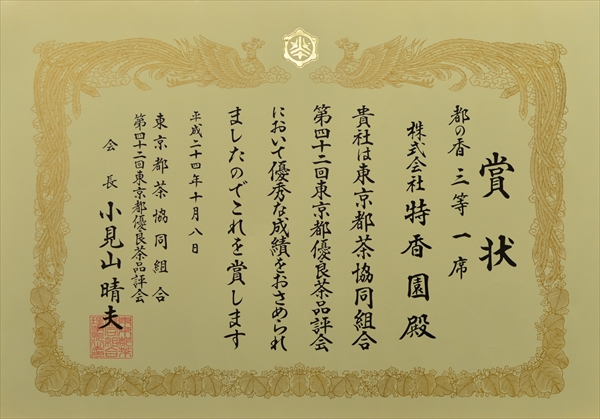 賞状
都の香 三等 一席
株式会社 特香園 殿
貴社は東京都茶協同組合
第四十二回東京都優良茶品評会
において優秀な成績をおさめられ
ましたのでこれを賞します
平成二十四年十月八日
東京都茶協同組合
第四十二回東京都優良茶品評会
会長 小見山晴夫